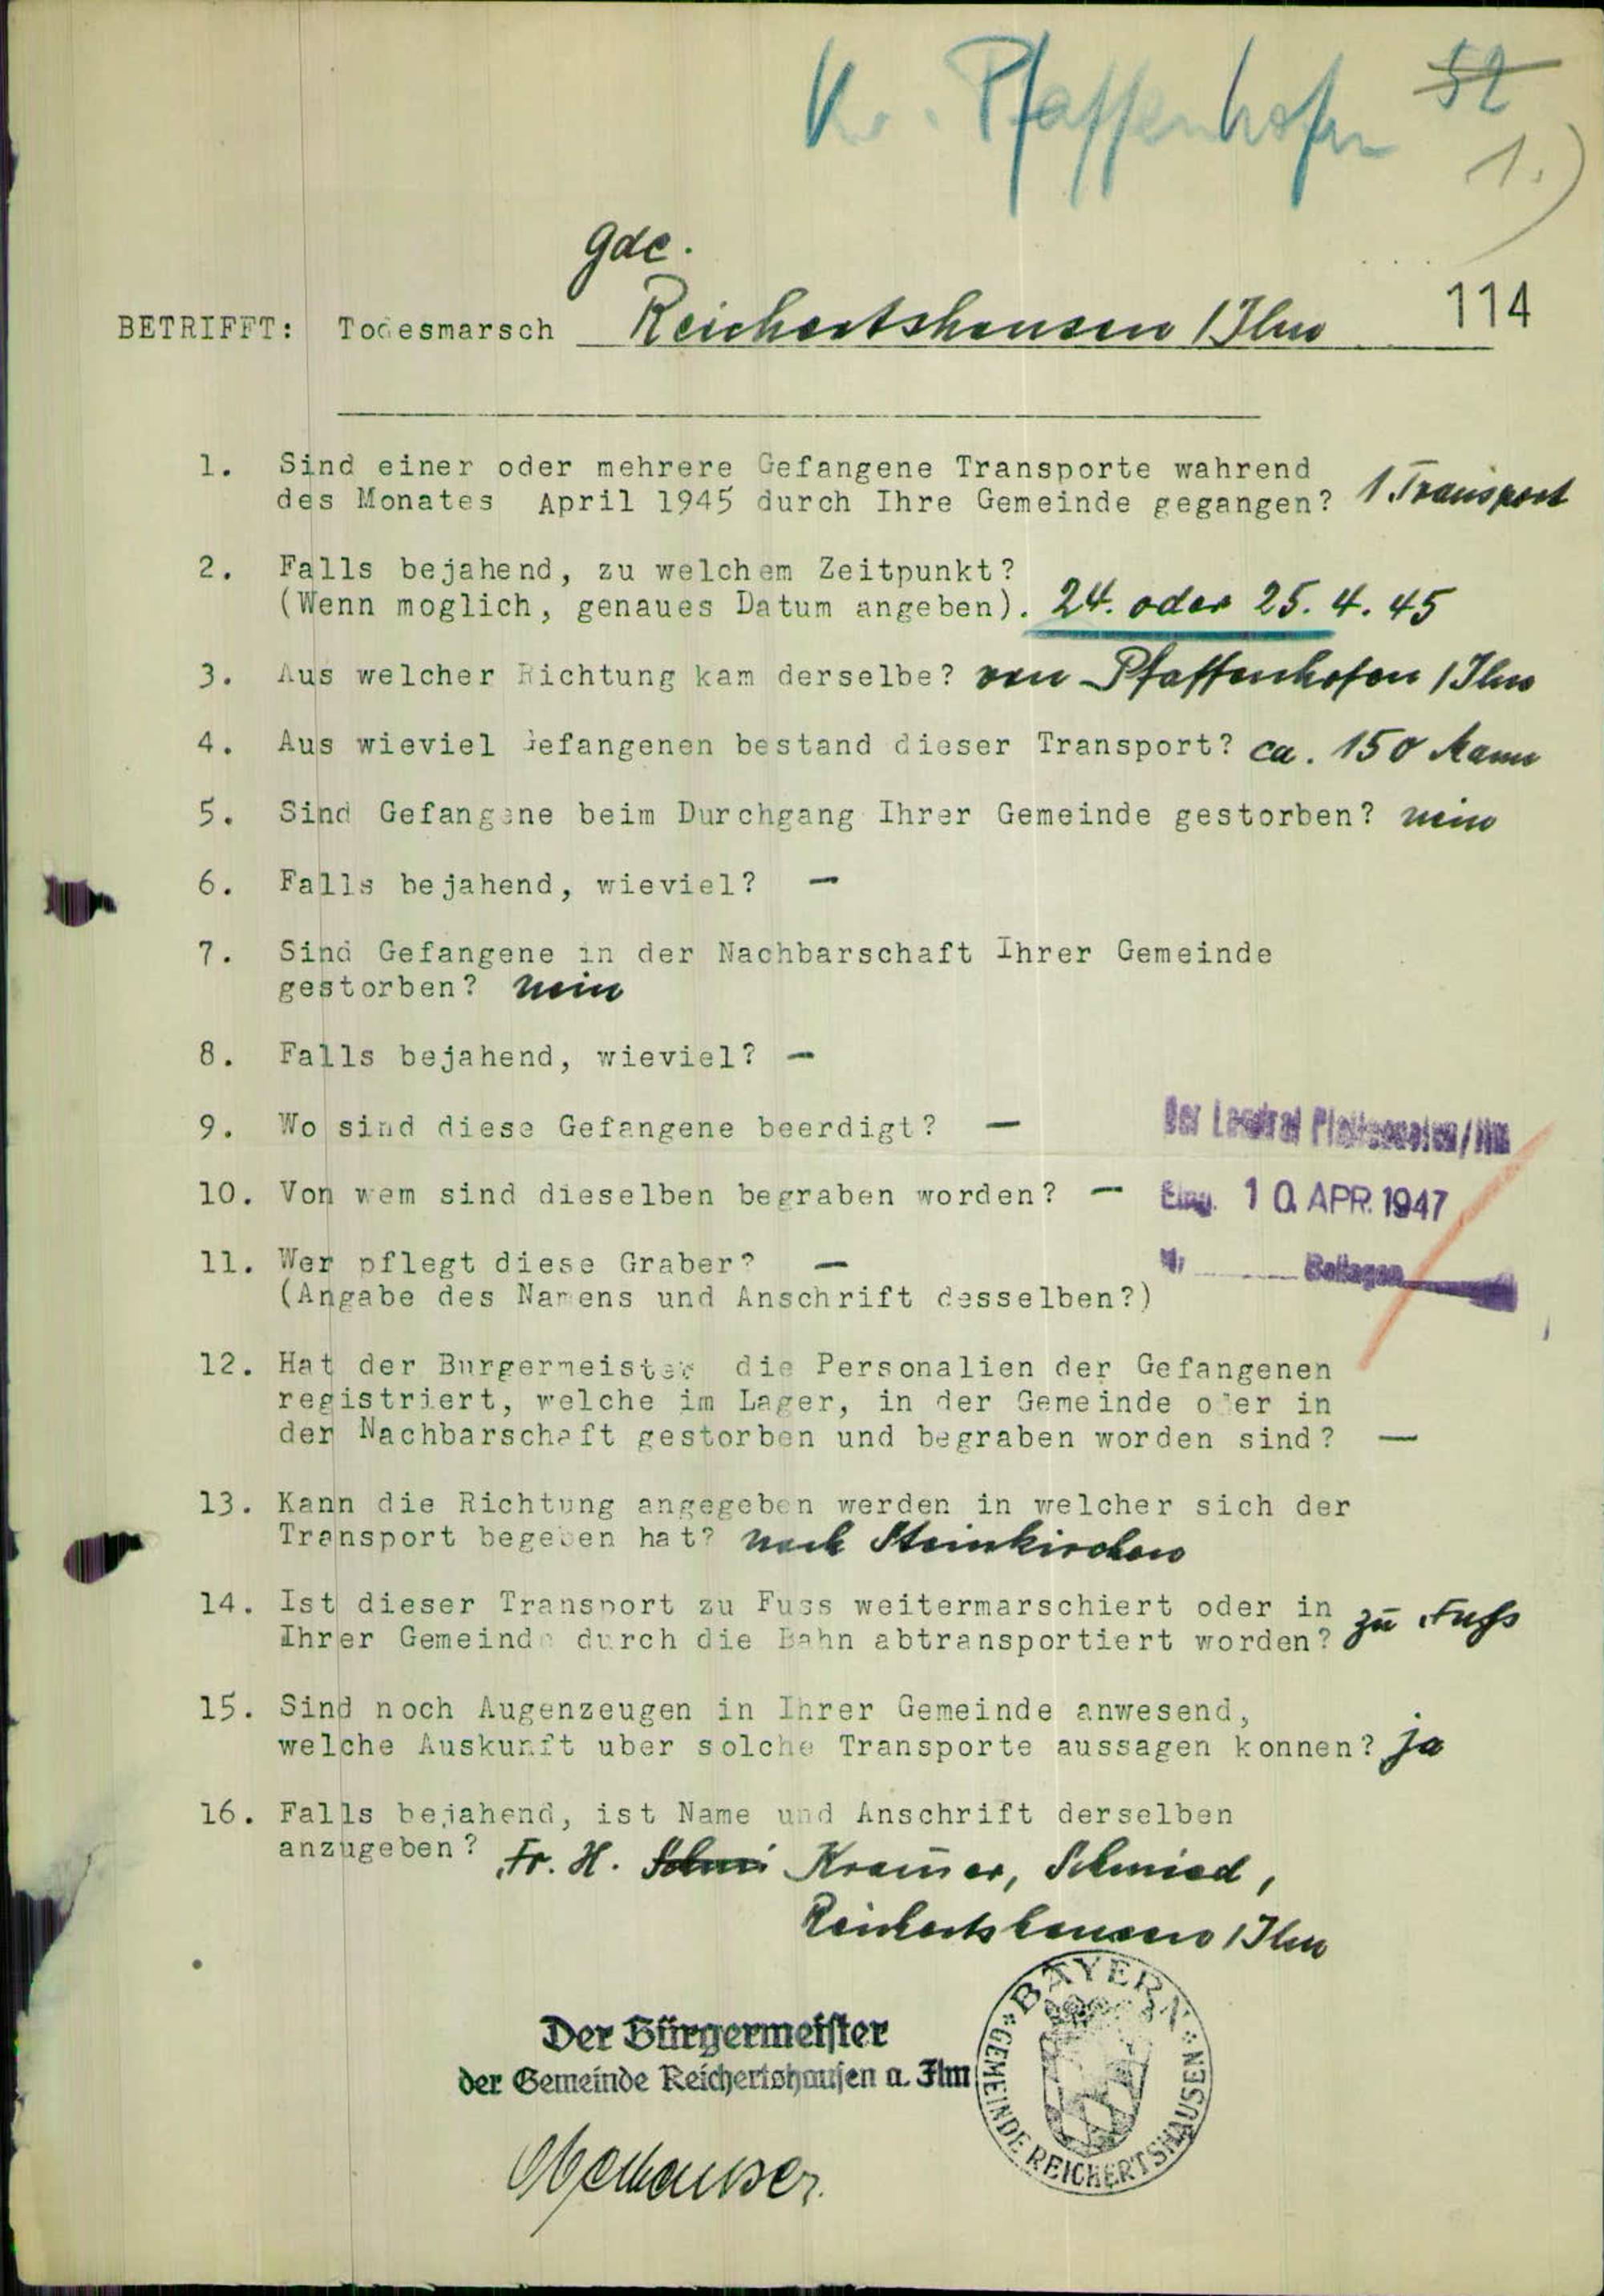 Kr. Pfaffenhofen 52
1.)
Gde.
114
BETRIFFT: Todesmarsch Reichertshausen / Ilm
1. Sind einer oder mehrere Gefangene Transporte wahrend
des Monates April 1945 durch Ihre Gemeinde gegangen? 1 Transport
2. Falls bejahend, zu welchem Zeitpunkt?
(Wenn moglich, genaues Datum angeben). 24. oder 25. 4. 45
3. Aus welcher Richtung kam derselbe? von Pfaffenhofen / Ilm
4. Aus wieviel Gefangenen bestand dieser Transport? ca. 150 Mann
5. Sind Gefangene beim Durchgang Ihrer Gemeinde gestorben? nein
6. Falls bejahend, wieviel? —
7. Sind Gefangene in der Nachbarschaft Ihrer Gemeinde
gestorben? nein
8. Falls bejahend, wieviel? —
9. Wo sind diese Gefangene beerdigt? —
Der Landrat Pfaffenhofen/Ilm
10. Von wem sind dieselben begraben worden? —
Eing. 10. APR. 1947
11. Wer pflegt diese Graber? —
Beilagen
(Angabe des Namens und Anschrift desselben?)
12. Hat der Burgermeister die Personalien der Gefangenen
registriert, welche im Lager, in der Gemeinde oder in
der Nachbarschaft gestorben und begraben worden sind? —
13. Kann die Richtung angegeben werden in welcher sich der
Transport begeben hat? nach Steinkirchen
14. Ist dieser Transport zu Fuss weitermarschiert oder in
Ihrer Gemeinde durch die Bahn abtransportiert worden? zu Fuß
15. Sind noch Augenzeugen in Ihrer Gemeinde anwesend,
welche Auskunft uber solche Transporte aussagen konnen? ja
16. Falls bejahend, ist Name und Anschrift derselben
anzugeben? Fr. H. Schmi Kramer, Schmied,
Reichertshausen / Ilm
Der Bürgermeister
der Gemeinde Reichertshausen a. Ilm
BAYERN
GEMEINDE REICHERTSHAUSEN